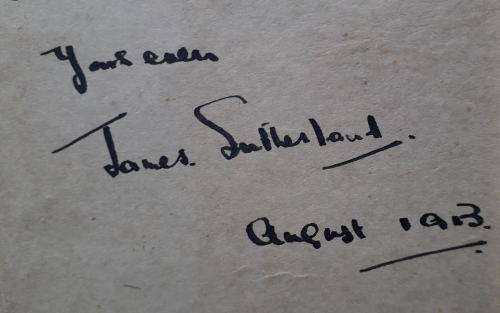 Yours ever
James Sutherland.
August 1913.